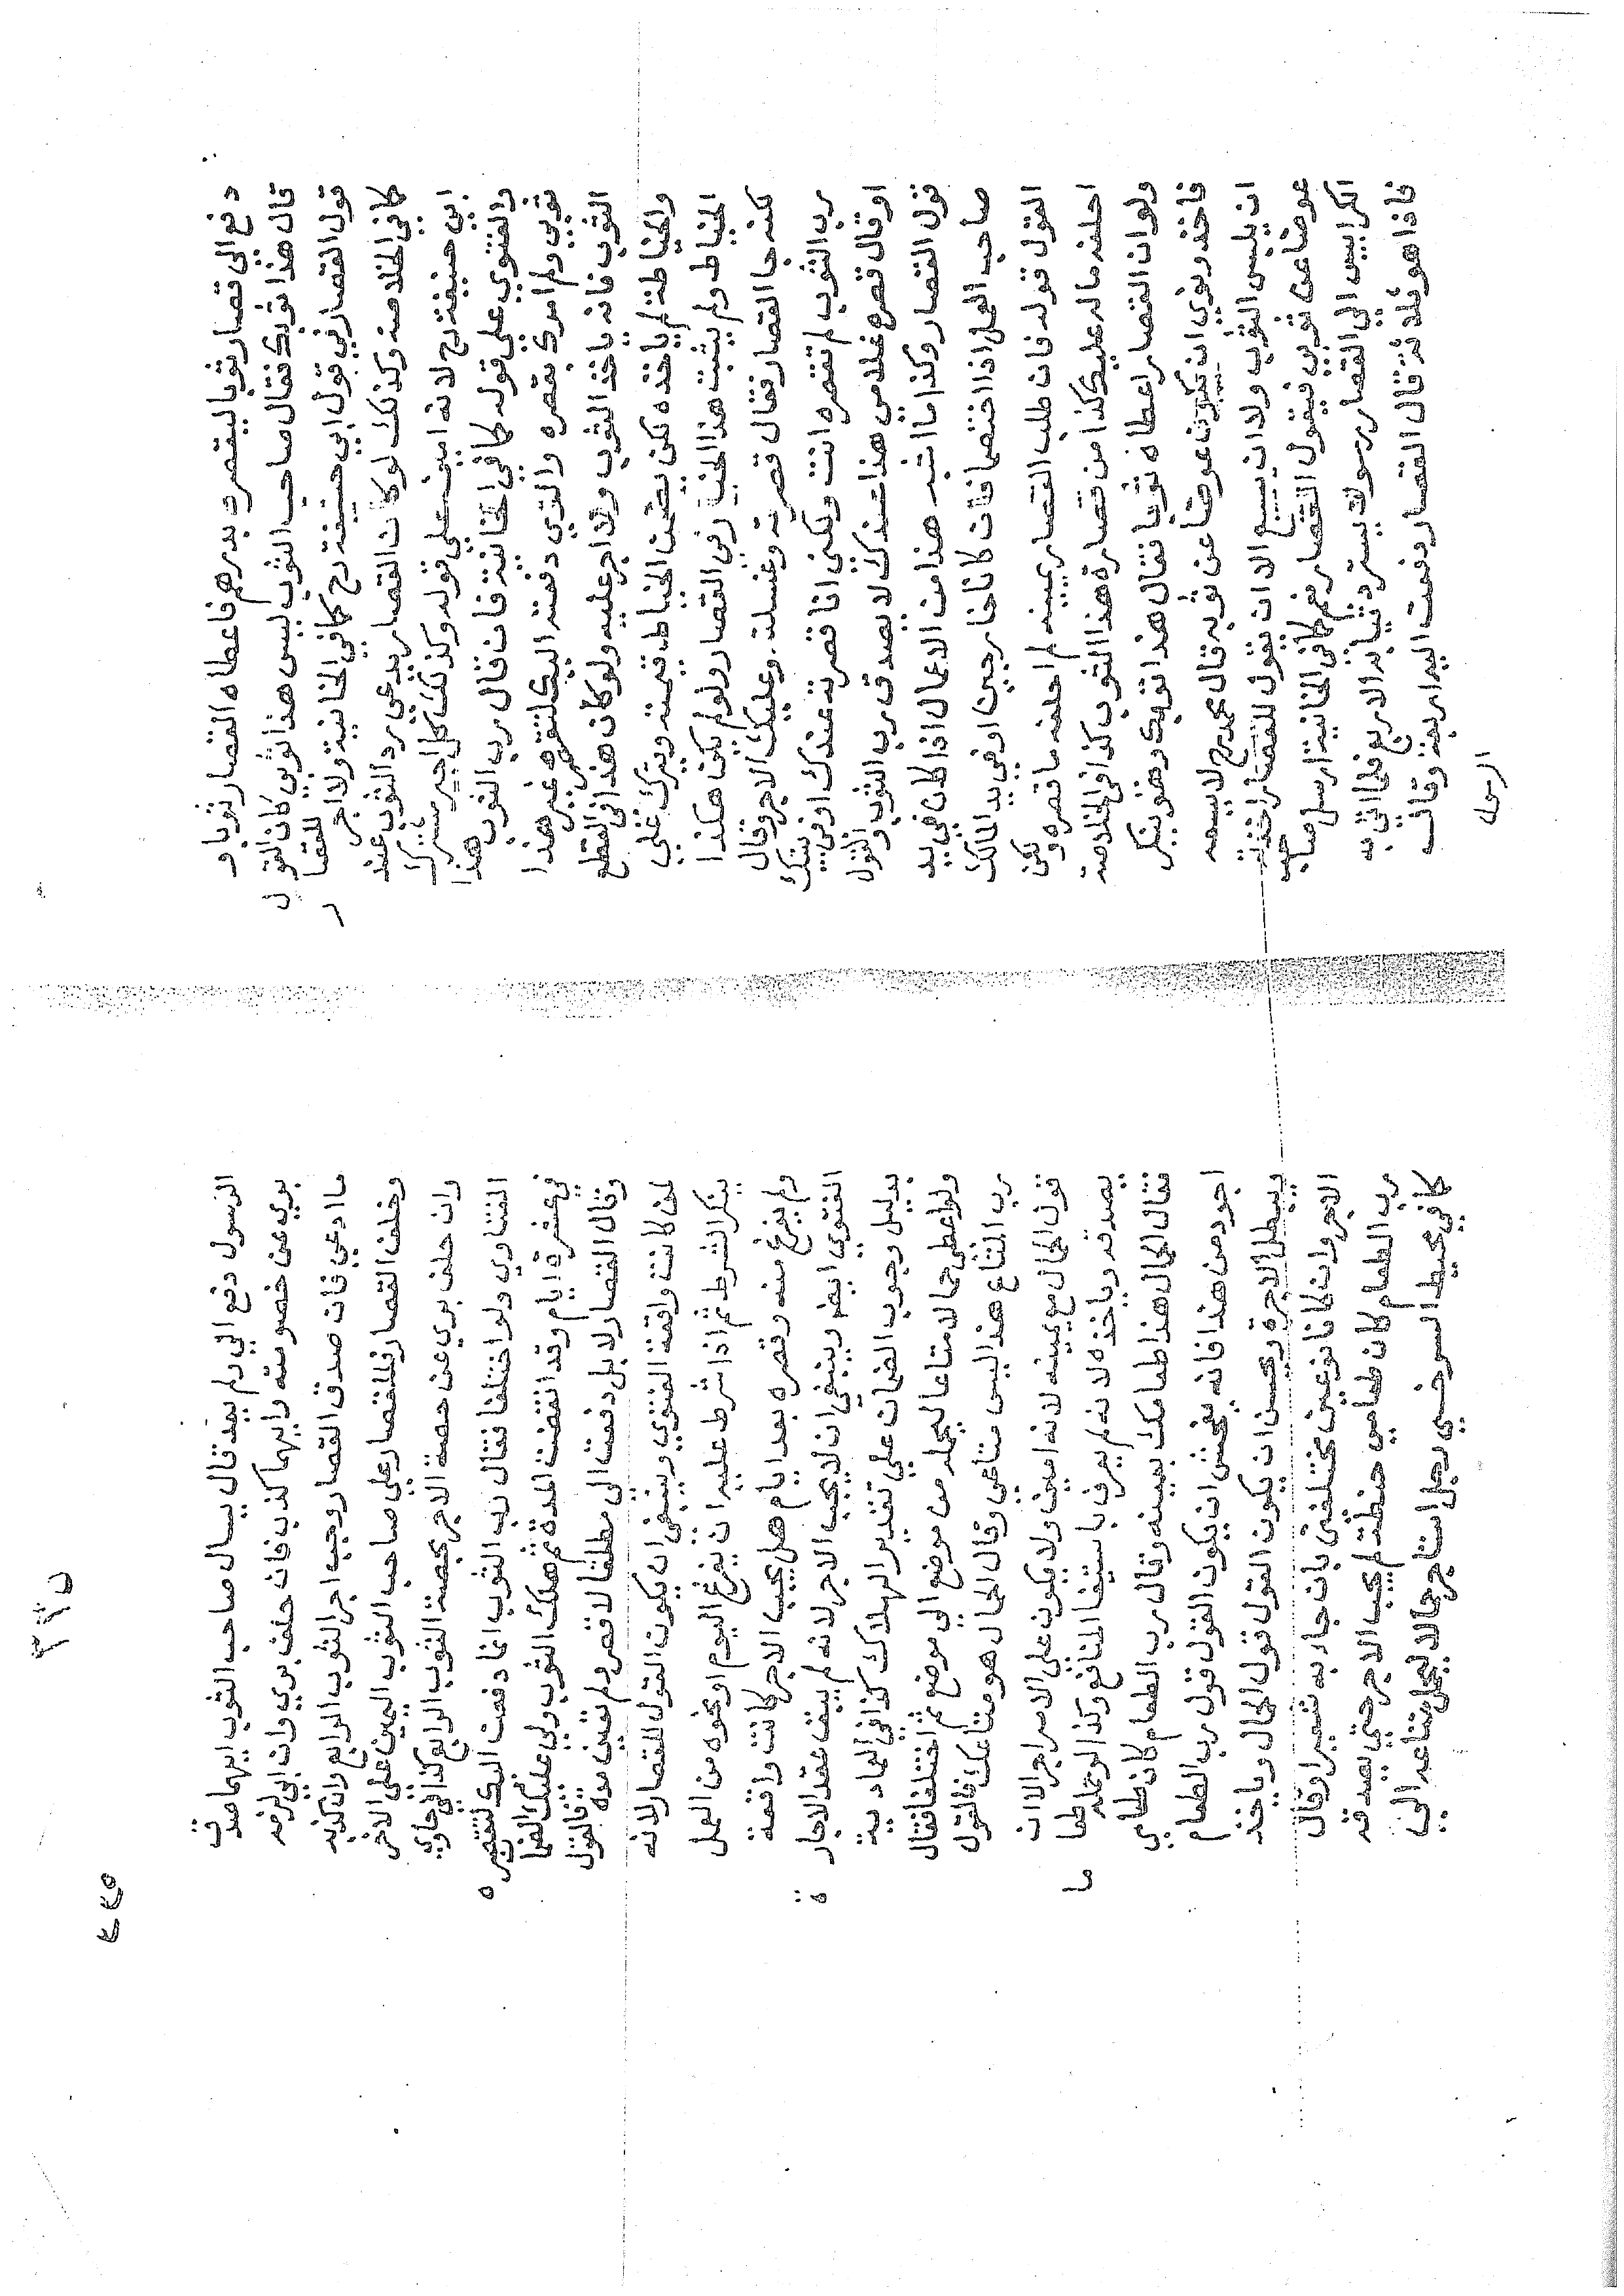 دفع الى قصار ثوبا ليقصره بدرهم فاعطاه القصار ثوبا و
قال هذا ثوبك فقال صاحب الثوب ليس هذا ثوبي كان القول
قول القصار في قول ابي حنيفة رح كما في الخانية ولا اجر للقصار
كما في الخلاصة وكذلك لو كان القصار يدعي رد الثوب عند
ابي حنيفة رح لانه امين على قوله وكذلك كل اجير مشترك
والفتوي على قوله كما في الخانية فان قال رب الثوب هذا
ثوبي ولم امرك بقصره والذي دفعته اليك لتقصره غير هذا
الثوب فانه ياخذ الثوب ولا اجر عليه ولو كان هذا في القطع
والخياطة لم ياخذه لكن يضمن الخياط قيمته ويترك علي
الخياط ولم يثبت هذا الخيار في القصار ولو لم يكن هكذا
لكنه جا القصار فقال قصرته وغسلته وعليك الاجر وقال
رب الثوب لم تقصره انت ولكني انا قصرته عندك او في بيتك
او قال قصره غلامي هذا عندك لا يصدق رب الثوب والقول
قول القصار وكذا ما اشبه هذا من الاعمال اذا كان في يد
صاحب العمل اذا اختصما فان كانا خارجين او في يد المالك
القول قوله فان طلب القصار يمينه لم احلفه ما قصره ولكن
احلفه ماله عليك كذا من قصارة هذا الثوب كذا في الخلاصة
ولو ان القصار اعطاه ثوبا فقال هذا ثوبك وهو ينكر
فاخذه ونوي ان تكون عوضا عن ثوبه قال محمد رح لا يسعه
ان يلبس الثوب ولا ان يبيع الا ان يقول للقصار اخذته
عوضا عن ثوبي فيقول القصار نعم كما في الخانية ارسل صاحب
الكرابيس الي القصار رسولا يسترد ثيابه الاربع فلما اتي به
فاذا هو ثلاثة قال القصار دفعت اليه اربعة وقال
الرسول
الرسول دفع الي ولم يعد قال يسال صاحب الثوب ايهما صدق
بري عن خصومته وايهما كذب فان حلف بري وان ابي لزمه
ما ادعي فان صدق القصار وجب اجر الثوب الرابع وان كذبه
وحلف القصار فللقصار علي صاحب الثوب اليمين على الاجر
وان حلف بري عن حصة الاجر بحصة الثوب الرابع كذا في حاوي
الفتاوي ولو اختلفا فقال رب الثوب انما دفعت اليك لتقصره
في عشرة ايام وقد انقضت المدة ثم هلك الثوب ولي عليك الضما
وقال القصار لا بل دفعت الي مطلقا لا قصر ولم تعين مدة فالقول
لمن كانت واقعة الفتوي وينبغي ان يكون القول للقصار لانه
ينكر الشرط ثم اذا شرط عليه ان يفرغ اليوم او نحوه من العمل
ولم يفرغ منه وقصره بعد ايام هل يجب الاجر كانت واقعة
الفتوي ايضا وينبغي ان لا يجب الاجر لانه لم يبق عقد الاجارة
بدليل وجوب الضمان علي تقدير الهلاك كذا في العمادية
ولو اعطى حمالا متاعا ليحمله من موضع الي موضع ثم اختلفا فقال
رب المتاع هذا ليس متاعي وقال الحمال هو متاعك فالقول
قول الحمال مع يمينه لانه امين ولا يكون على الامر اجر الا ان
يصدقه وياخذه لانه لم يعرف باستيفا المنافع وكذا لو حمله طعاما
فقال الحمال هذا طعامك بعينه وقال رب الطعام كان طعامي
اجود من هذا فانه يفحش ان يكون القول قول رب الطعام
ويبطل الاجرة ويحسن ان يكون القول قول الحمال وياخذ
الاجر وان كانا نوعين مختلفين بان جا به شعيرا وقال
رب الطعام كان طعامي حنطة لم يجب الاجر حتي يصدقه
كما في محيط السرخسي رجل استاجر حمالا ليحمل متاعه الي